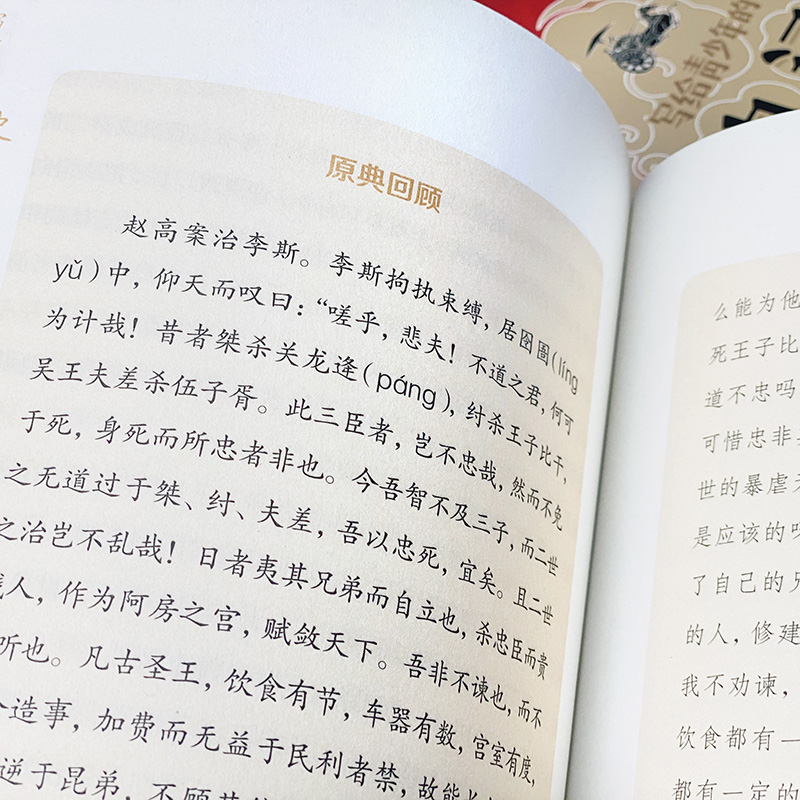 史
写给青少年的
原典回顾
赵高案治李斯。李斯拘执束缚，居囹圄(líng
yǔ)中，仰天而叹曰：“嗟乎，悲夫！不道之君，何可
为计哉！昔者桀杀关龙逄(páng)，纣杀王子比干，
吴王夫差杀伍子胥。此三臣者，岂不忠哉，然而不免
于死，身死而所忠者非也。今吾智不及三子，而二世
之无道过于桀、纣、夫差，吾以忠死，宜矣。且二世
之治岂不乱哉！日者夷其兄弟而自立也，杀忠臣而贵
贱人，作为阿房之宫，赋敛天下。吾非不谏也，而不
听也。凡古圣王，饮食有节，车器有数，宫室有度，
造事，加费而无益于民利者禁，故能长
逆于昆弟，不顾其
么能为他
死王子比
道不忠吗
可惜忠非
世的暴虐
是应该的
了自己的兄
的人，修建
我不劝谏，
饮食都有一
都有一定的